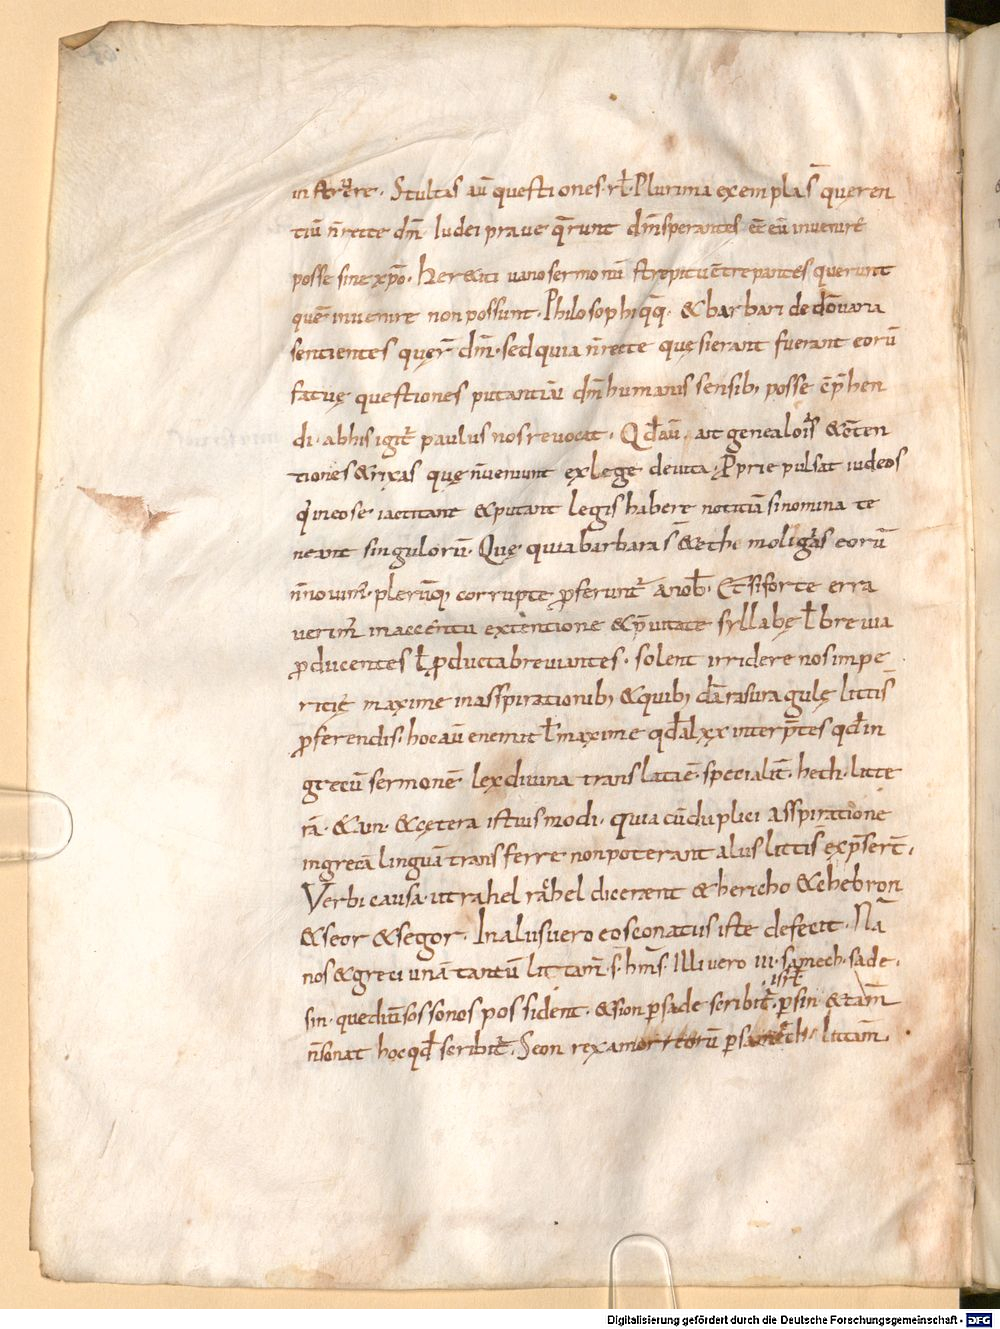 Stultas aū questiones· rł· Plurima exempla s̄ queren
tiū n̄ recte dm̄· Iudei prave q̄runt dm̄ sperantes eē eū inveniri
posse sine xp̄o· Heretici vano sermonū strepitu crepantes querunt
quē invenire non possunt· Philosophi q̄q̄· & barbari de dō varia
sentientes quer̄ dm̄· sed quia n̄ recte quęsierant fuerant eorū
fatuę questiones putantiū dm̄ humanis sensib; posse c̄p̄hen
di· ab his igit̄ paulus nos revocat· Qd̄ aū ait genealogi s̄ & c̄ten
tiones & rixas quę n̄ veniunt ex lege devita· P̄prie pulsat iudeos
qͥ in eo se iactitant & putant legis habere notitiā si nomina te
neant singulorū· Quę quia barbara s̄ & ethimoligias eorū
n̄ novim̄· plerūq; corrupte ꝓferunt̄ a nob̄· Et si forte erra
verim̄ in accentu extentione & p̄vitate syllabę ł brevia
ꝓducentes ł ꝓducta breviantes· solent irridere nos impe
ritię maxime in asspirationib; & quib;dā rasura gulę litt̄is
ꝓferendis· hoc aū evenit ł maxime qd̄ a lxx interp̄tes qd̄ in
grecū sermonē lex divina translata ē· specialit̄· hech· litte
rā· & ain· & cętera istius modi· quia cū duplici asspiratione
in grecā linguā transferre non poterant aliis litt̄is exp̄ser̄t·
Verbi causa· ut rahel rachel dicerent & hericho & chebron
& seor & segor· In aliis vero eos conatus iste defecit· Nā
nos & greci unā tantū litt̄am· s· hm̄s· Illi vero iii· samech· sade·
isrł
sin· que diūsos sonos possident· & sion p sade scribit̄· p sin· & tam̄
n̄ sonat hoc qd̄ scribit̄· Seon rex amorreorū p samech· litt̄am·
Digitalisierung gefördert durch die Deutsche Forschungsgemeinschaft - DFG